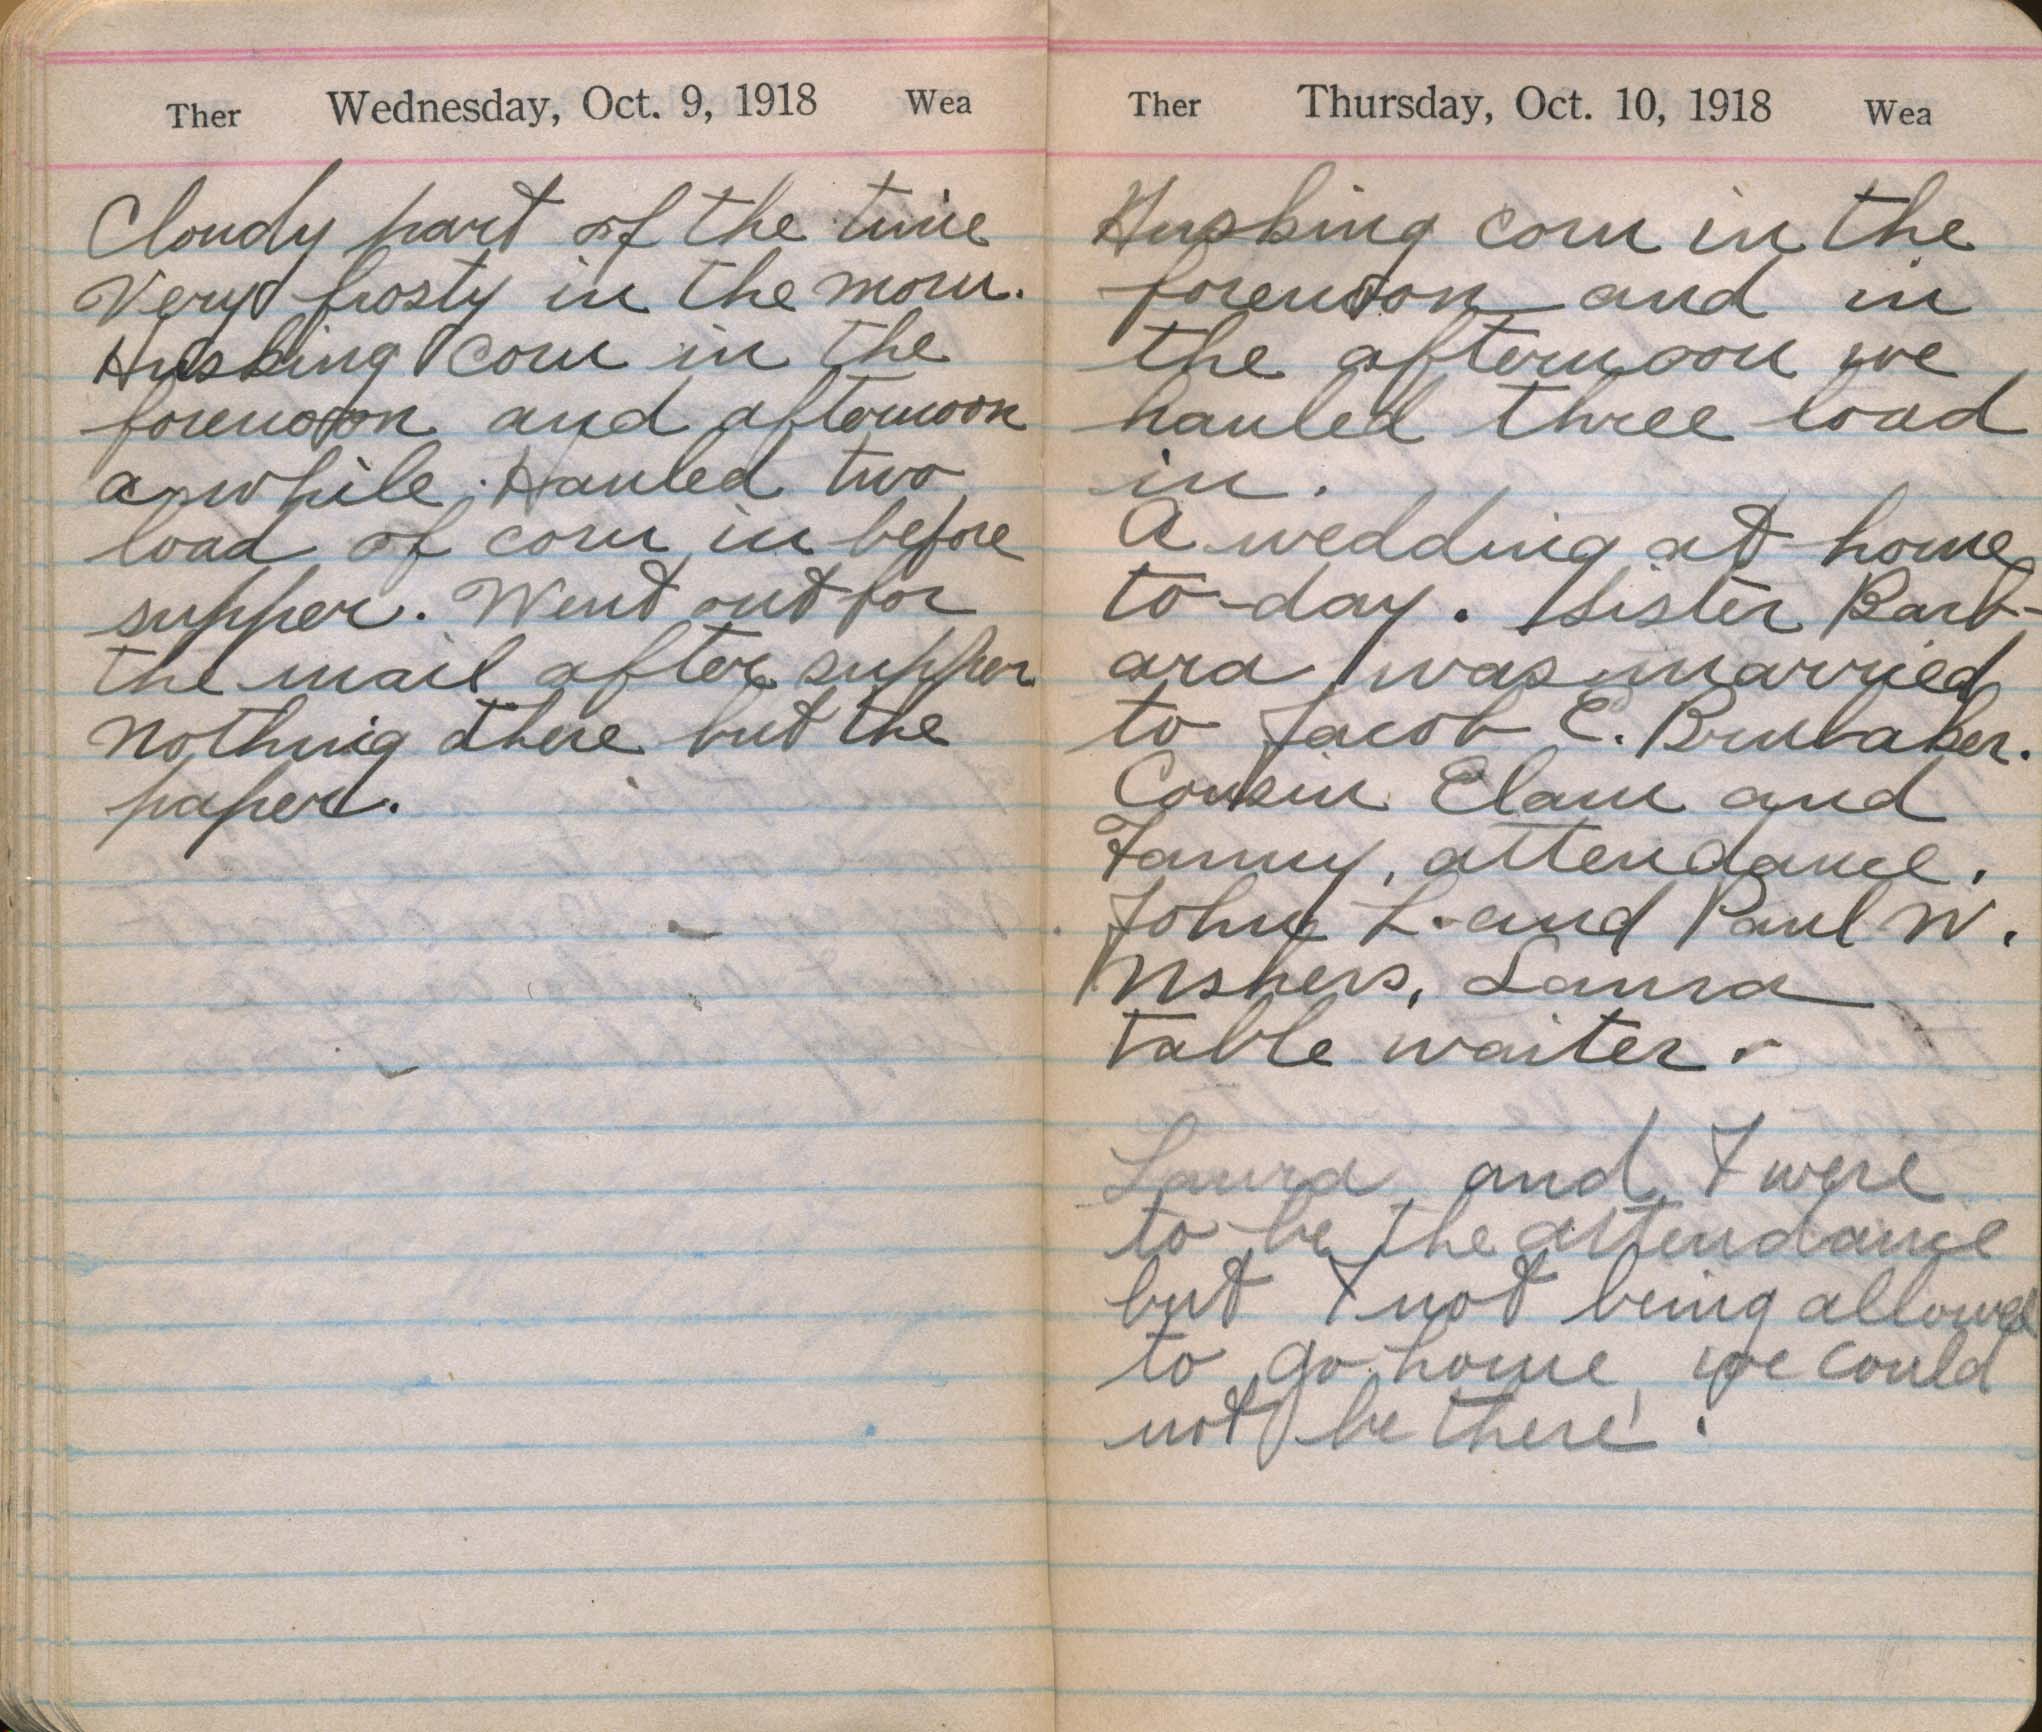 Ther Wednesday, Oct. 9, 1918 Wea
Cloudy part of the time
Very frosty in the morn.
Husking corn in the
forenoon and afternoon
a while. Hauled two
load of corn in before
supper. Went out for
the mail after supper
nothing there but the
paper.
Ther Thursday, Oct. 10, 1918 Wea
Husking corn in the
forenoon and in
the afternoon we
hauled three load
in.
A wedding at home
to-day. Sister Barb-
ara was married
to Jacob E. Brubaker.
Cousin Elam and
Fanny, attendance.
John L. and Paul W.
Ushers, Laura
table waiter.
Laura and I were
to be the attendance
but I not being allowed
to go home, we could
not be there.